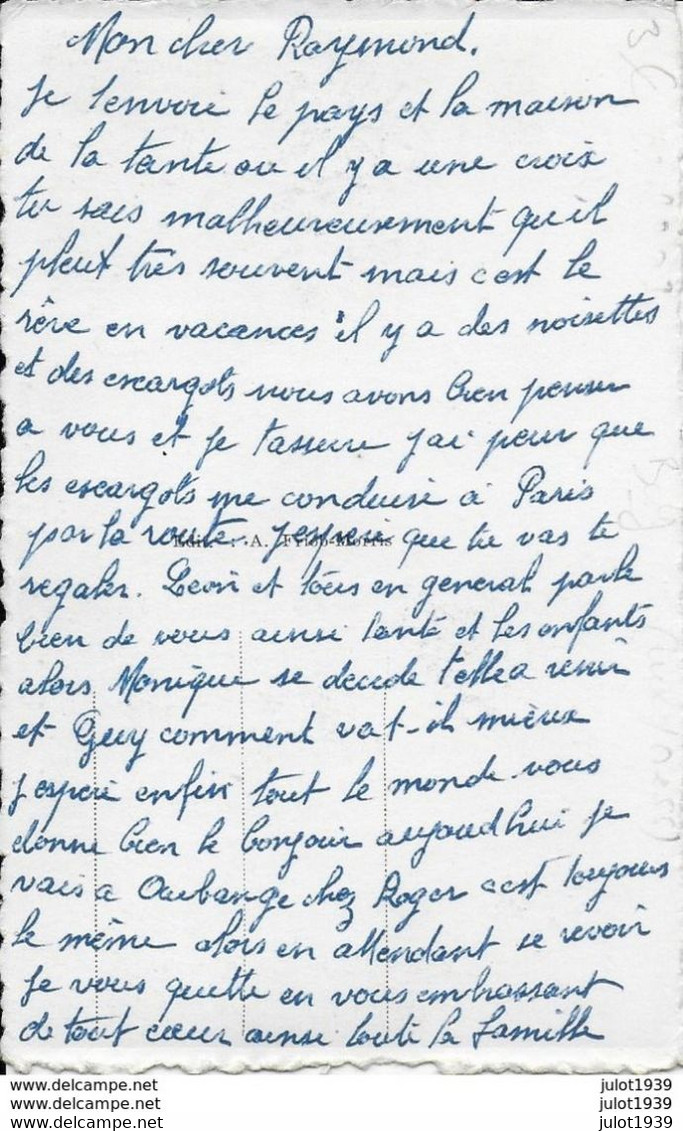 Mon cher Raymond.
Je t'envoie le pays et la maison
de la tante ou il y a une croix
tu sais malheureusement qu il
pleut très souvent mais c est le
rêve en vacances il y a des noisettes
et des escargots nous avons bien penser
a vous et je t'assure j ai peur que
les escargots me conduise à Paris
par la route. J'espère que tu vas te
Edit. : A. Frion-Morris
regaler. Léon et tous en general parle
bien de vous ainsi tante et les enfants
alors Monique se decide t'elle a venir
et Guy comment vat-il mieux
j espère enfin tout le monde vous
donne bien le bonjour aujourd hui je
vais a Aubange chez Roger c est toujours
le même alors en attendant se revoir
Je vous quitte en vous embrassant
de tout cœur ainsi toute la famille
www.delcampe.net julot1939
www.delcampe.net julot1939
www.delcampe.net julot1939